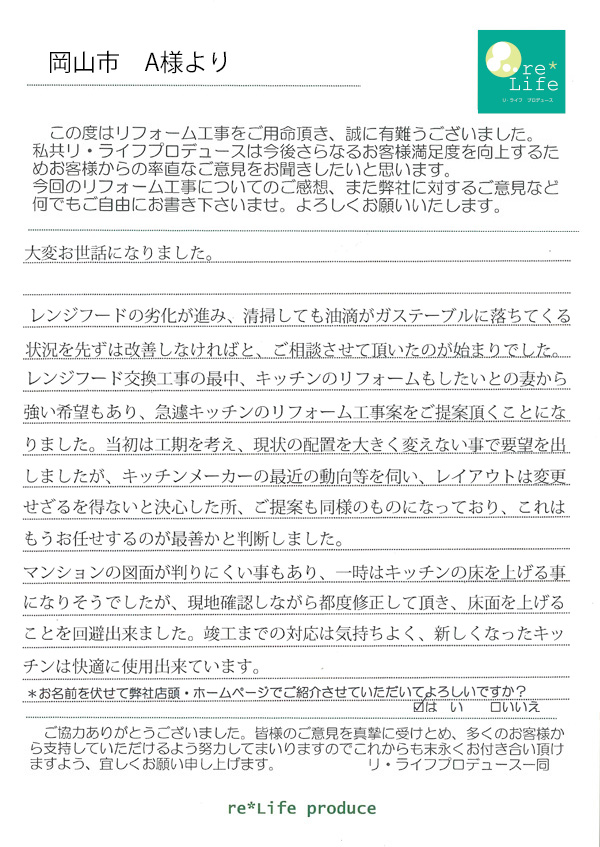 岡山市　A様より
re*
Life
リ・ライフ　プロデュース
この度はリフォーム工事をご用命頂き、誠に有難うございました。
私共リ・ライフプロデュースは今後さらなるお客様満足度を向上するた
めお客様からの率直なご意見をお聞きしたいと思います。
今回のリフォーム工事についてのご感想、また弊社に対するご意見など
何でもご自由にお書き下さいませ。よろしくお願いいたします。
大変お世話になりました。
レンジフードの劣化が進み、清掃しても油滴がガステーブルに落ちてくる
状況を先ずは改善しなければと、ご相談させて頂いたのが始まりでした。
レンジフード交換工事の最中、キッチンのリフォームもしたいとの妻から
強い希望もあり、急遽キッチンのリフォーム工事案をご提案頂くことにな
りました。当初は工期を考え、現状の配置を大きく変えない事で要望を出
しましたが、キッチンメーカーの最近の動向等を伺い、レイアウトは変更
せざるを得ないと決心した所、ご提案も同様のものになっており、これは
もうお任せするのが最善かと判断しました。
マンションの図面が判りにくい事もあり、一時はキッチンの床を上げる事
になりそうでしたが、現地確認しながら都度修正して頂き、床面を上げる
ことを回避出来ました。竣工までの対応は気持ちよく、新しくなったキッ
チンは快適に使用出来ています。
＊お名前を伏せて弊社店頭・ホームページでご紹介させていただいてよろしいですか？
☑は　い　　□いいえ
ご協力ありがとうございました。皆様のご意見を真摯に受けとめ、多くのお客様か
ら支持していただけるよう努力してまいりますのでこれからも末永くお付き合い頂け
ますよう、宜しくお願い申し上げます。　　　　リ・ライフプロデュース一同
re*Life produce